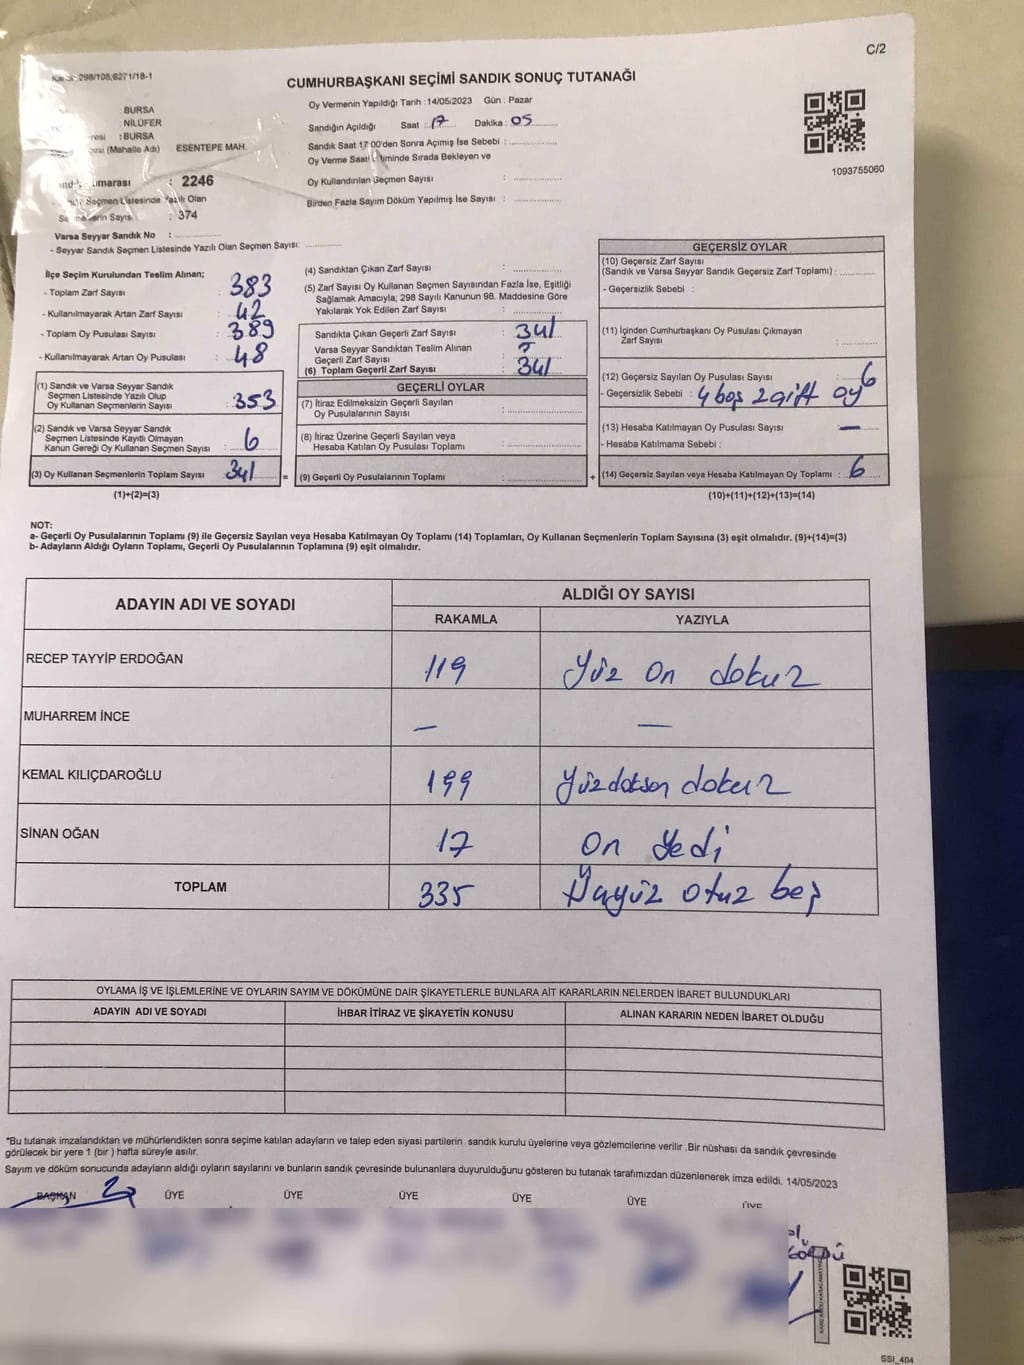 C/2
298/105;6271/18-1
CUMHURBAŞKANI SEÇİMİ SANDIK SONUÇ TUTANAĞI
: BURSA
: NİLÜFER
: BURSA
(Mahalle Adı) ESENTEPE MAH.
: 2246
Seçmen Listesinde Yazılı Olan
: 374
Varsa Seyyar Sandık No :
- Seyyar Sandık Seçmen Listesinde Yazılı Olan Seçmen Sayısı:
Oy Vermenin Yapıldığı Tarih : 14/05/2023 Gün : Pazar
Sandığın Açıldığı Saat : 17 Dakika : 05
Sandık Saat 17:00'den Sonra Açımış İse Sebebi :
Oy Verme Saati Bitiminde Sırada Bekleyen ve
Oy Kullandırılan Seçmen Sayısı :
Birden Fazla Sayım Döküm Yapılmış İse Sayısı :
1093755060
İlçe Seçim Kurulundan Teslim Alınan;
- Toplam Zarf Sayısı : 383
- Kullanılmayarak Artan Zarf Sayısı : 42
- Toplam Oy Pusulası Sayısı : 389
- Kullanılmayarak Artan Oy Pusulası : 48
(1) Sandık ve Varsa Seyyar Sandık
Seçmen Listesinde Yazılı Olup
Oy Kullanan Seçmenlerin Sayısı : 353
(2) Sandık ve Varsa Seyyar Sandık
Seçmen Listesinde Kayıtlı Olmayan
Kanun Gereği Oy Kullanan Seçmen Sayısı : 6
(3) Oy Kullanan Seçmenlerin Toplam Sayısı : 341 =
(1)+(2)=(3)
(4) Sandıktan Çıkan Zarf Sayısı :
(5) Zarf Sayısı Oy Kullanan Seçmen Sayısından Fazla İse, Eşitliği
Sağlamak Amacıyla; 298 Sayılı Kanunun 98. Maddesine Göre
Yakılarak Yok Edilen Zarf Sayısı :
Sandıkta Çıkan Geçerli Zarf Sayısı : 341
Varsa Seyyar Sandıktan Teslim Alınan
Geçerli Zarf Sayısı :
(6) Toplam Geçerli Zarf Sayısı : 341
GEÇERLİ OYLAR
(7) İtiraz Edilmeksizin Geçerli Sayılan
Oy Pusulalarının Sayısı :
(8) İtiraz Üzerine Geçerli Sayılan veya
Hesaba Katılan Oy Pusulası Toplamı :
(9) Geçerli Oy Pusulalarının Toplamı : +
GEÇERSİZ OYLAR
(10) Geçersiz Zarf Sayısı
(Sandık ve Varsa Seyyar Sandık Geçersiz Zarf Toplamı) :
- Geçersizlik Sebebi :
(11) İçinden Cumhurbaşkanı Oy Pusulası Çıkmayan
Zarf Sayısı :
(12) Geçersiz Sayılan Oy Pusulası Sayısı : 6
- Geçersizlik Sebebi : 4 boş 2 çift oy
(13) Hesaba Katılmayan Oy Pusulası Sayısı : —
- Hesaba Katılmama Sebebi :
(14) Geçersiz Sayılan veya Hesaba Katılmayan Oy Toplamı : 6
(10)+(11)+(12)+(13)=(14)
NOT:
a- Geçerli Oy Pusulalarının Toplamı (9) ile Geçersiz Sayılan veya Hesaba Katılmayan Oy Toplamı (14) Toplamları, Oy Kullanan Seçmenlerin Toplam Sayısına (3) eşit olmalıdır. (9)+(14)=(3)
b- Adayların Aldığı Oyların Toplamı, Geçerli Oy Pusulalarının Toplamına (9) eşit olmalıdır.
ADAYIN ADI VE SOYADI ALDIĞI OY SAYISI
RAKAMLA YAZIYLA
RECEP TAYYİP ERDOĞAN 119 Yüz on dokuz
MUHARREM İNCE — —
KEMAL KILIÇDAROĞLU 199 Yüzdoksen dokuz
SİNAN OĞAN 17 on yedi
TOPLAM 335 Üçyüz otuz beş
OYLAMA İŞ VE İŞLEMLERİNE VE OYLARIN SAYIM VE DÖKÜMÜNE DAİR ŞİKAYETLERLE BUNLARA AİT KARARLARIN NELERDEN İBARET BULUNDUKLARI
ADAYIN ADI VE SOYADI İHBAR İTİRAZ VE ŞİKAYETİN KONUSU ALINAN KARARIN NEDEN İBARET OLDUĞU
*Bu tutanak imzalandıktan ve mühürlendikten sonra seçime katılan adayların ve talep eden siyasi partilerin sandık kurulu üyelerine veya gözlemcilerine verilir .Bir nüshası da sandık çevresinde
görülecek bir yere 1 (bir ) hafta süreyle asılır.
Sayım ve döküm sonucunda adayların aldığı oyların sayılarını ve bunların sandık çevresinde bulunanlara duyurulduğunu gösteren bu tutanak tarafımızdan düzenlenerek imza edildi. 14/05/2023
BAŞKAN ÜYE ÜYE ÜYE ÜYE ÜYE ÜYE
SSI_404